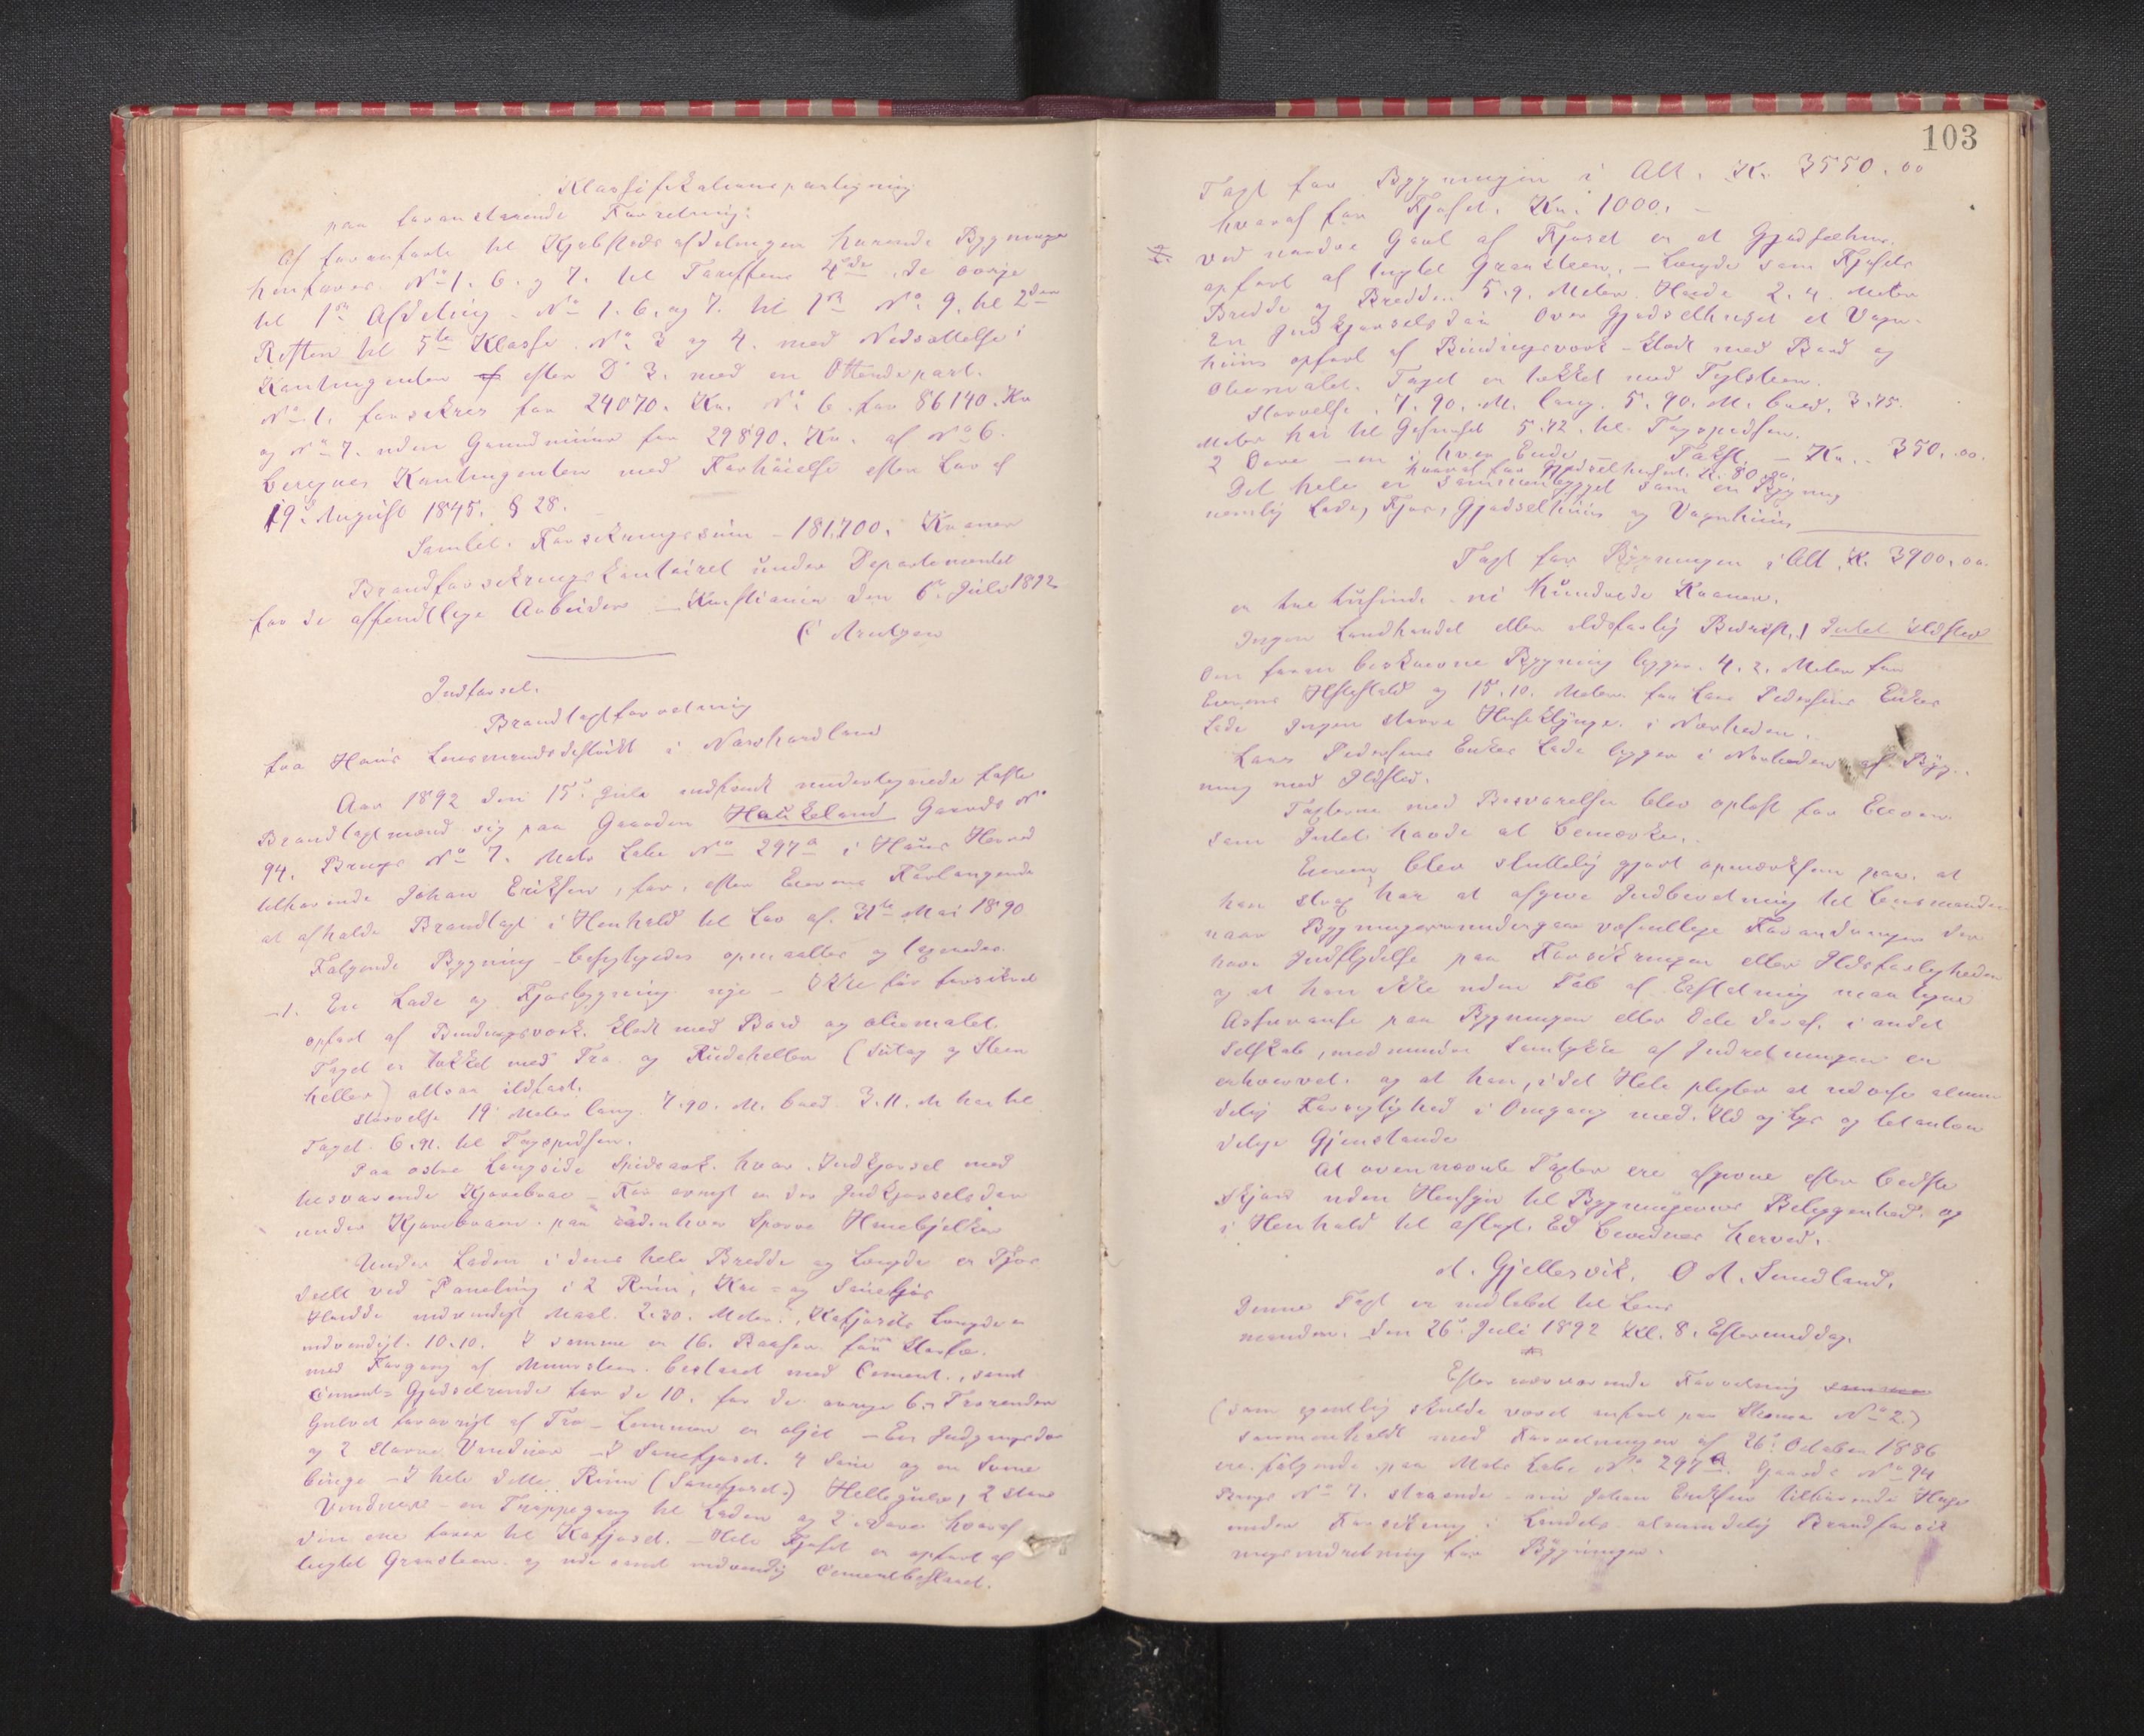 Klassifikationspaategning
paa foranstaaende Forretning:
Af foranførte til Kjøbstedsafdelingen hørende Bygninger
henføres No 1. 6. og 7. til Tariffens 4de, de øvrige
til 1ste Afdeling. No 1. 6. og 7. til 1ste No 9. til 2den
Resten til 5te Klasse. No 3 og 4. med Nedsættelse i
Kontingenten efter D 3. med en Ottendepart.
No 1. forsikres for 24070. Kr. No 6 for 86140. Kr
og No 7. uden Grundmuur for 29890. Kr. af No 6.
beregnes Kontingenten med Forhøielse efter Lov af
19de August 1845. § 28.
Samlet. Forsikringssum – 181,700. Kroner
Brandforsikringskontoiret under Departementet
for de offentlige Arbeider – Kristiania den 6te Juli 1892
C Arntzen
Indførsel.
Brandtaxtforretning
fra Haus Lensmandsdistrikt i Nordhordland
Aar 1892 den 15de Juli indfandt undertegnede faste
Brandtaxtmænd sig paa Gaarden Haukeland Gaards No
94. Brugs No 7. Matr Løbe No 297a i Haus Herred
tilhørende Johan Eriksen, for, efter Eierens Forlangende
at afholde Brandtaxt i Henhold til Lov af. 31te Mai 1890
Følgende Bygning besigtigedes opmaaltes og taxeredes.
1. En Lade og Fjøsbygning nye – Ikke før forsikret
opført af Bindingsværk. klædt med Bord og oliemalet.
Taget er tækket med Træ og Rudeheller (Sutag og Steen
heller) altsaa ildfast.
størrelse 19 Meter lang. 7.90. M. bred. 3.11. M høi til
Taget. 6.91. til Tagspidsen.
Paa østre Langside Spidsark. hvor Indkjørsel med
tilsvarende Kjørebroe – For øvrigt er der Indkjørselsdør
under Kjørebroen. paa hver Sperre Hanebjelker
Under Laden i dens hele Bredde og Længde er Fjøs
delt ved Paneling i 2 Rum, Koe- og Sauefjøs
Høidde indvendigt Maal. 2.30. Meter. Kofjøsets Længde er
indvendigt. 10.10. I samme er 16. Baaser for Storfæ.
med Forgang af Muursteen. beslaaet med Cement., samt
Cement= Gjødselrende for de 10. for de øvrige 6 Trærender
Gulvet forøvrigt af Træ – Lemmen er oljet – En Indgangsdør
og 2 større Vinduer – I Sauefjøset. 4 Saue og en Svine
binge – I hele dette Rum (Sauefjøset.) Hellegulv, 2 større
Vinduer – en Trappegang til Laden og 2 Døre hvoraf
den ene fører til Kofjøset. – Hele Fjøset er opført af
hugtet Graasteen. og ude samt indvendig Cementbeslaaet.
103
Taxt for Bygningen i Alt. Kr. 3550.00
hvoraf for Fjøset. Kr. 1000. –
Ved nordre Gavl af Fjøset er et Gjødselhus.
opført af hugtet Graasteen. – Længde som Fjøsets
Bredde og Bredden 5.9. Meter Høide 2.4. Meter
En Indkjørselsdør Over Gjødselhuset et Vogn-
huus opført af Bindingsværk – klædt med Bord og
Oliemalet. Taget er tækket med Teglsteen.
størrelse. 7.90. M. lang. 5.90. M. bred. 3.75.
Meter høi til Gesimset 5.72. til Tagspidsen.
2 Døre – en i hver Ende – Takst. – Kr. 350.00.
hvoraf for Gjødselhuset. K. 80.00.
Det hele er sammenbygget som en Bygning
nemlig Lade, Fjøs, Gjødselhuus og Vognhuus
Taxt for Bygningen i Alt. K. 3900.00.
er tre tusinde ni Hundrede Kroner.
Ingen Landhandel eller ildsfarlig Bedrift, Intet Ildsted
Den foran beskrevne Bygning ligger. 4.2. Meter fra
Eierens og 15.10. Meter fra Lars Pedersens Enkes
Lade Ingen større Huseklynge. i Nærheden.
Lars Pedersens Enkes Lade ligger i Nærheden af Byg-
ning med Ildsted.
Taxterne med Besvarelsen blev oplæst for Eieren
som Intet havde at bemærke.
Eieren blev sluttelig gjort opmærksom paa, at
han strax har at afgive Indberetning til Lensmanden
naar Bygningerne undergaar væsentlige Forandringer der
have Indflydelse paa Forsikringen eller Ildsfarligheden
og at han ikke uden Tab af Erstatning maa tegne
Assurance paa Bygningen eller Dele deraf, i andet
Selskab, med mindre Samtykke af Indretningen er
erhvervet. og at han, i det Hele pligter at udvise almin
delig Forsigtighed i Omgang med. Ild og Lys og letanten
delige Gjenstande
At ovennævnte Taxter ere afgivne efter bedste
Skjøn uden Hensyn til Bygningernes Beliggenhed. og
i Henhold til aflagt Ed bevidnes herved.
A. Gjellesvik. O A. Sundland.
Denne Taxt er indløbet til Lens
manden. den 26de Juli 1892 Kl. 8. Eftermiddag.
Efter nærværende Forretning
(som egentlig skulde været anført paa Skema No 2.)
sammenholdt med Forretningen af 26de October 1886
ere følgende paa Matr Løbe No 297a Gaards No 94
Brugs No 7. staaende Johan Eriksen tilhørende Huse
under Forsikring i Landets almindelig Brandforsik
ringsindretning for Bygninger.